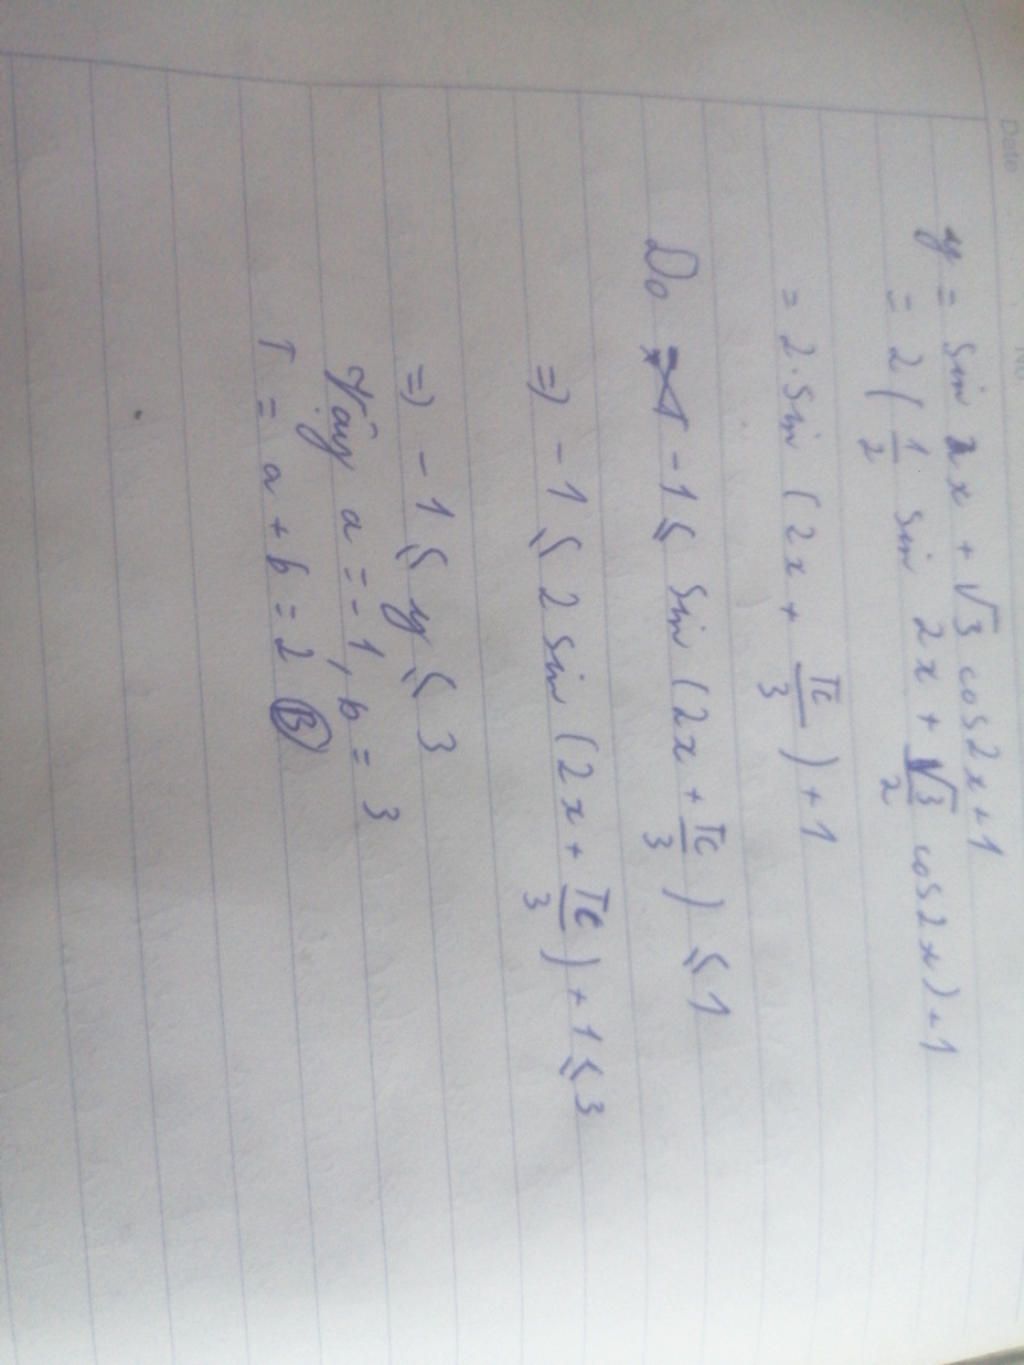 Date
No
y = sin 2x + √3 cos2x+1
= 2 ( 1/2 sin 2x + √3/2 cos2x)+1
= 2.sin (2x + π/3 ) +1
Do -1 ≤ sin (2x + π/3 ) ≤ 1
=> -1 ≤ 2 sin (2x + π/3 ) + 1 ≤ 3
=> -1 ≤ y ≤ 3
Vậy a = -1, b = 3
T = a + b = 2 (B)